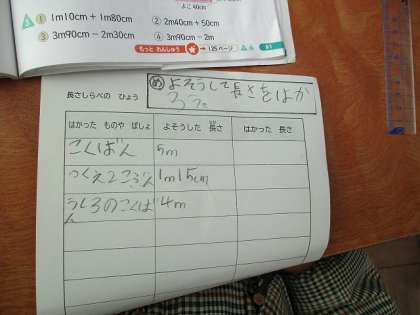 よこ 40cm
① 1m10cm+1m80cm ② 2m40cm+50cm
③ 3m90cm−2m30cm ④ 3m90cm−2m
もっと れんしゅう 125ページ
め よそうして長さをはか
ろう。
長さしらべの ひょう
はかった ものや ばしょ よそうした 長さ はかった 長さ
こくばん 5m
つくえ2こぶん 1m15cm
うしろのこくば 4m
ん